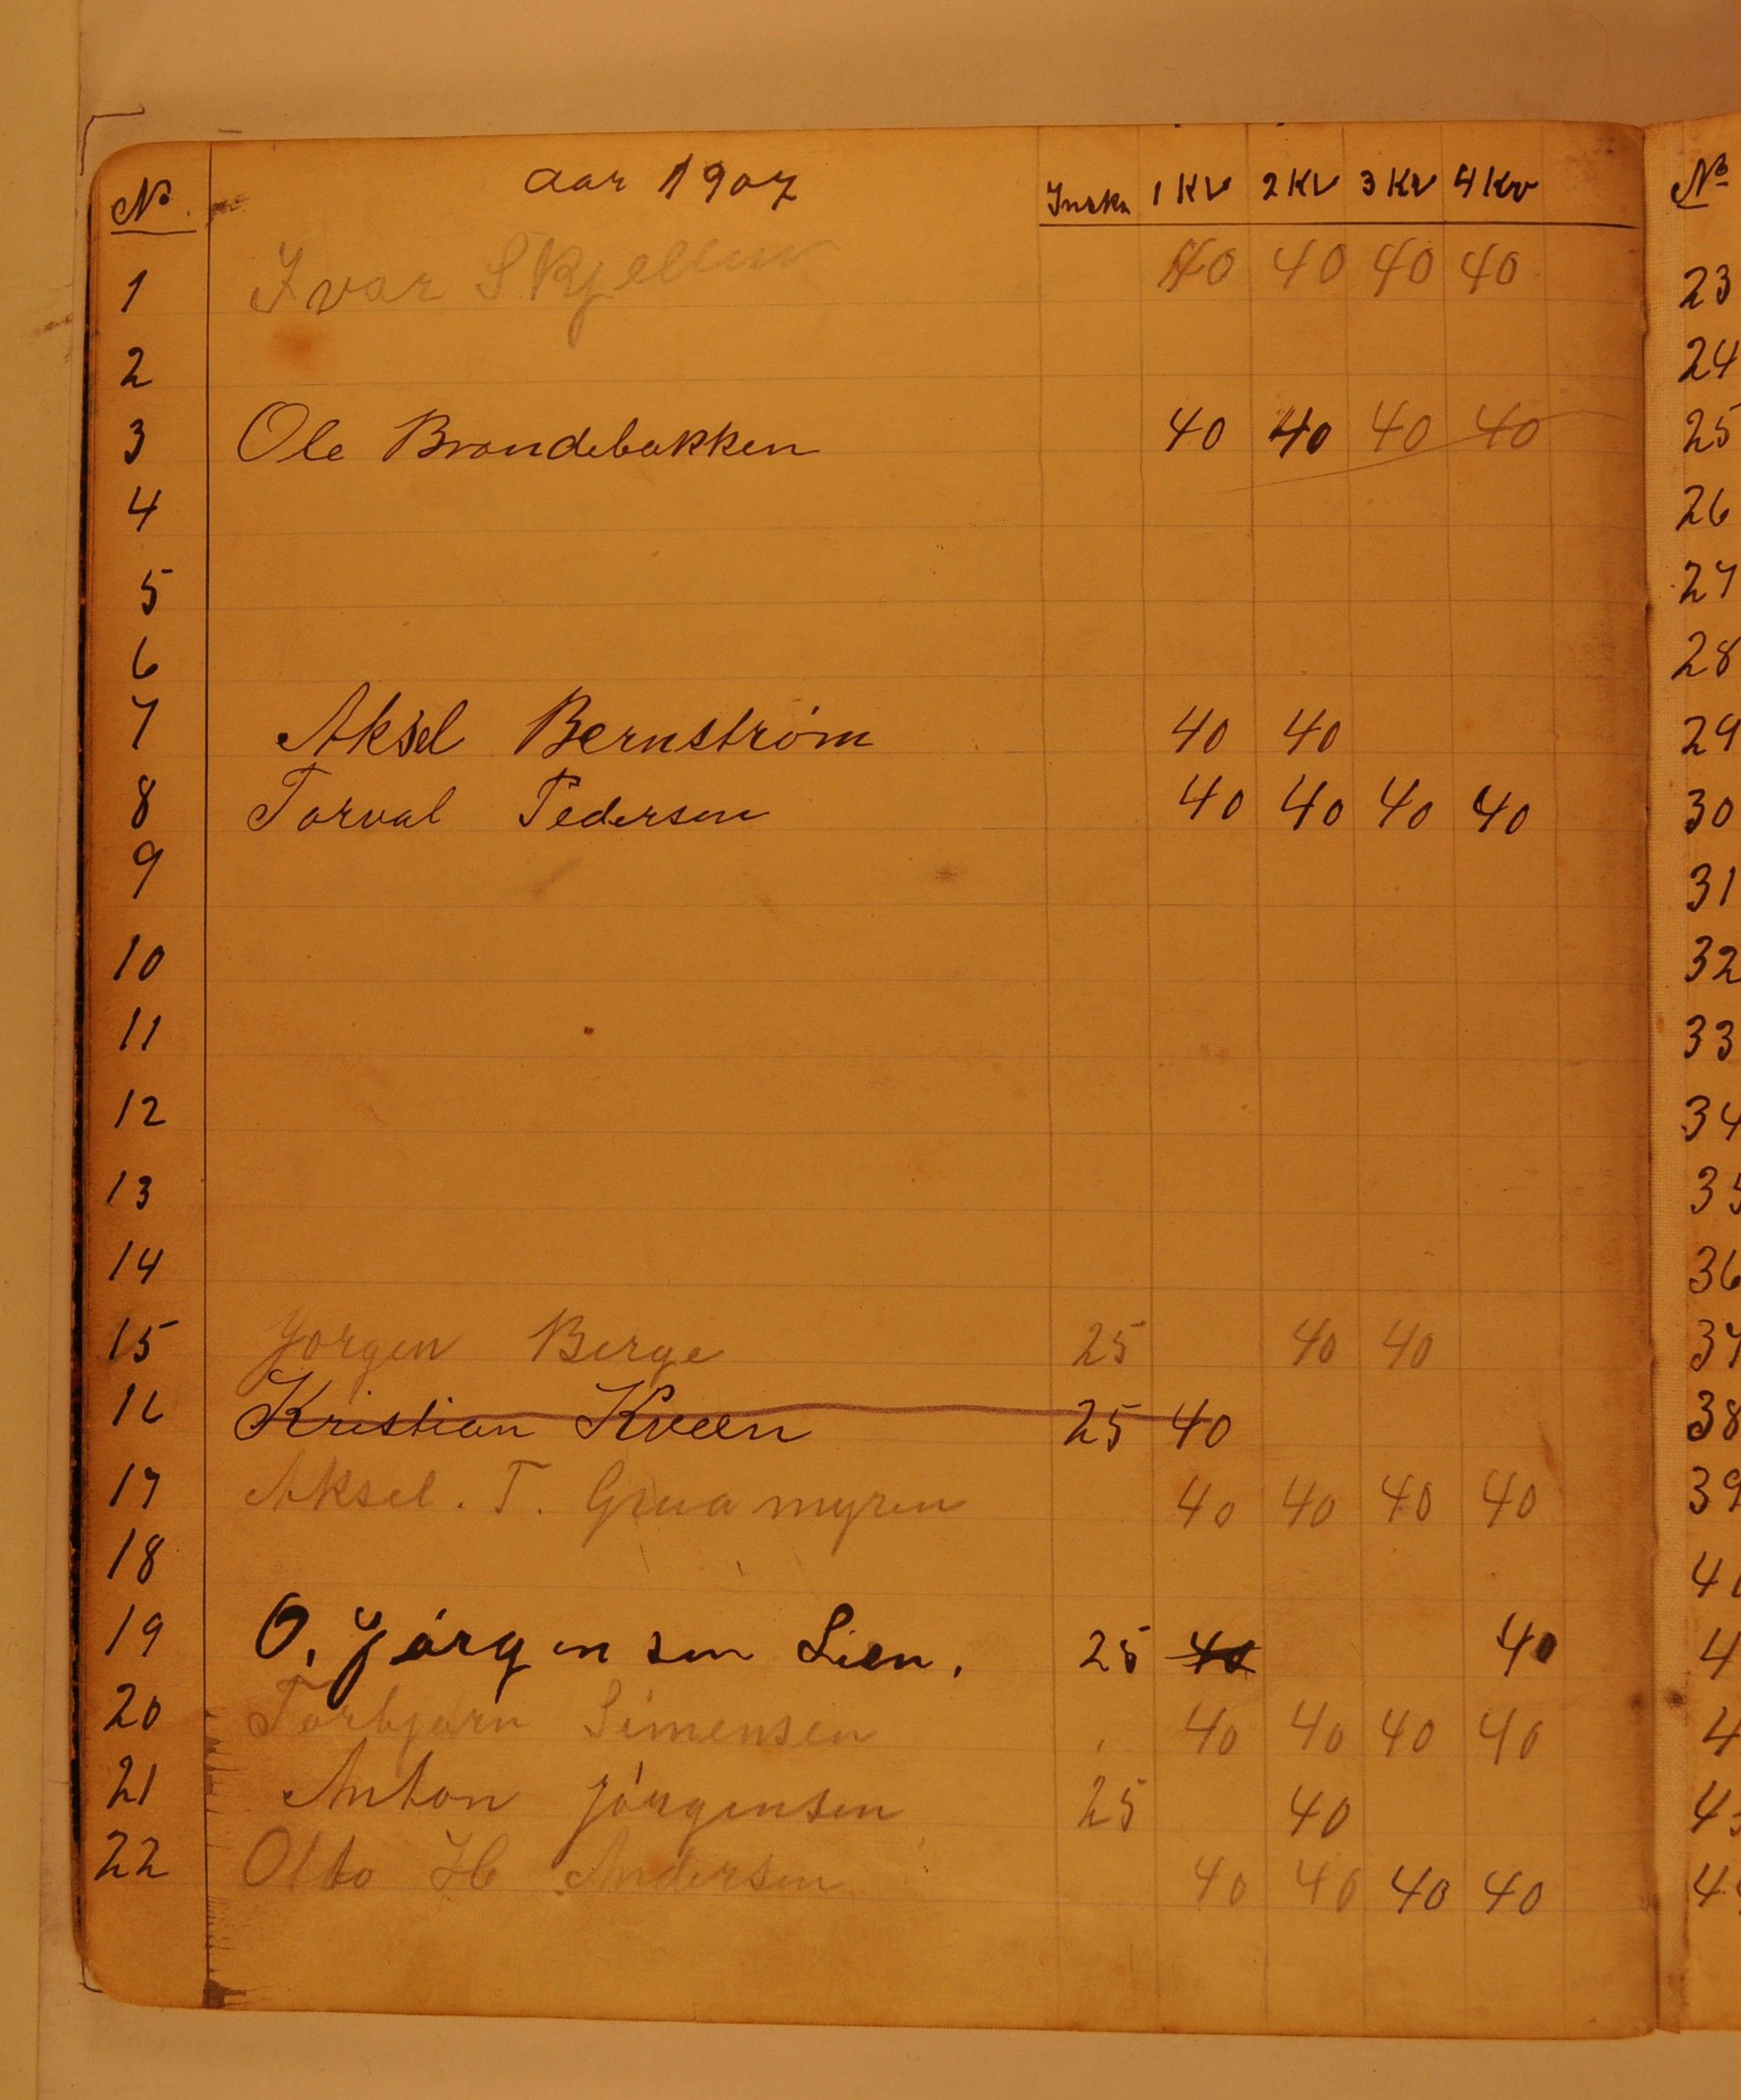 No aar 1907 Inskr 1 Kv 2 Kv 3 Kv 4 Kv No
1 Ivar 40 40 40 40 23
2 24
3 Ole Brandebakken 40 40 40 40 25
4 26
5 27
6 28
7 Aksel Bernstrøm 40 40 29
8 Torval Pedersen 40 40 40 40 30
9 31
10 32
11 33
12 34
13 35
14 36
15 Jørgen Berge 25 40 40 37
16 Kristian Kveen 25 40 38
17 Aksel. T. Gruamyren 40 40 40 40 39
18 4
19 O. Jørgensen Lien. 25 40 40 4
20 Torbjørn Simensen 40 40 40 40 4
21 Anton Jørgensen 25 40 4
22 Otto H Andersen 40 40 40 40 4